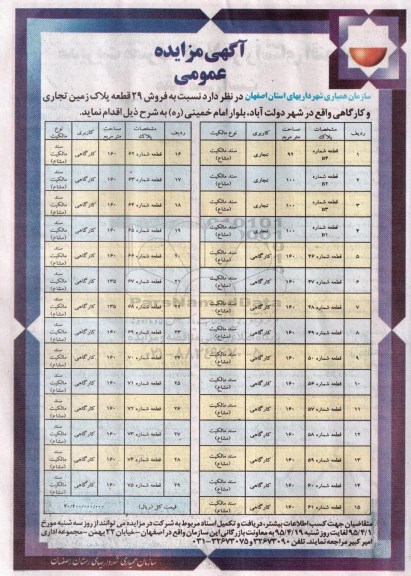 آگهی مزایده
عمومی
سازمان همیاری شهرداریهای استان اصفهان در نظر دارد نسبت به فروش ۲۹ قطعه پلاک زمین تجاری
و کارگاهی واقع در شهر دولت آباد، بلوار امام خمینی (ره) به شرح ذیل اقدام نماید.
ردیف مشخصات پلاک مساحت متر مربع کاربری نوع مالکیت
۱ قطعه شماره ۹۶ تجاری سند مالکیت (مشاع)
۲ قطعه شماره ۱۰۰ تجاری سند مالکیت (مشاع)
۳ قطعه شماره ۱۰۰ تجاری سند مالکیت (مشاع)
۴ قطعه شماره ۱۰۰ تجاری سند مالکیت (مشاع)
۵ قطعه شماره ۴۶ ۱۶۰ کارگاهی سند مالکیت (مشاع)
۶ قطعه شماره ۴۷ ۱۶۰ کارگاهی سند مالکیت (مشاع)
۷ قطعه شماره ۴۸ ۱۶۰ کارگاهی سند مالکیت (مشاع)
۸ قطعه شماره ۴۹ ۱۶۰ کارگاهی سند مالکیت (مشاع)
۹ قطعه شماره ۵۰ ۱۶۰ کارگاهی سند مالکیت (مشاع)
۱۰ قطعه شماره ۵۶ ۱۶۰ کارگاهی سند مالکیت (مشاع)
۱۱ قطعه شماره ۵۷ ۱۶۰ کارگاهی سند مالکیت (مشاع)
۱۲ قطعه شماره ۵۸ ۱۶۰ کارگاهی سند مالکیت (مشاع)
۱۳ قطعه شماره ۵۹ ۱۶۰ کارگاهی سند مالکیت (مشاع)
۱۴ قطعه شماره ۶۰ ۱۶۰ کارگاهی سند مالکیت (مشاع)
۱۵ قطعه شماره ۶۱ ۱۶۰ کارگاهی سند مالکیت (مشاع)
ردیف مشخصات پلاک مساحت متر مربع کاربری نوع مالکیت
۱۶ قطعه شماره ۶۲ ۱۶۰ کارگاهی سند مالکیت (مشاع)
۱۷ قطعه شماره ۶۳ ۱۶۰ کارگاهی سند مالکیت (مشاع)
۱۸ قطعه شماره ۶۴ ۱۶۰ کارگاهی سند مالکیت (مشاع)
۱۹ قطعه شماره ۶۵ ۱۶۰ کارگاهی سند مالکیت (مشاع)
۲۰ قطعه شماره ۶۶ ۱۶۰ کارگاهی سند مالکیت (مشاع)
۲۱ قطعه شماره ۶۷ ۱۳۵ کارگاهی سند مالکیت (مشاع)
۲۲ قطعه شماره ۶۸ ۱۳۵ کارگاهی سند مالکیت (مشاع)
۲۳ قطعه شماره ۶۹ ۱۶۰ کارگاهی سند مالکیت (مشاع)
۲۴ قطعه شماره ۷۰ ۱۶۰ کارگاهی سند مالکیت (مشاع)
۲۵ قطعه شماره ۷۱ ۱۶۰ کارگاهی سند مالکیت (مشاع)
۲۶ قطعه شماره ۷۲ ۱۶۰ کارگاهی سند مالکیت (مشاع)
۲۷ قطعه شماره ۷۳ ۱۶۰ کارگاهی سند مالکیت (مشاع)
۲۸ قطعه شماره ۷۴ ۱۶۰ کارگاهی سند مالکیت (مشاع)
۲۹ قطعه شماره ۷۵ ۱۶۰ کارگاهی سند مالکیت (مشاع)
قیمت کل (ریال)
متقاضیان جهت کسب اطلاعات بیشتر، دریافت و تکمیل اسناد مربوط به شرکت در مزایده می توانند از روز سه شنبه مورخ
۹۵/۴/۱ لغایت روز شنبه ۹۵/۴/۱۹ به معاونت بازرگانی این سازمان واقع در اصفهان -خیابان ۲۲ بهمن -مجموعه اداری
امیر کبیر مراجعه نمایند. تلفن ۳۲۶۷۳۰۹۰ و ۳۲۶۷۳۰۷۵-۰۳۱
سازمان همیاری شهرداریهای استان اصفهان